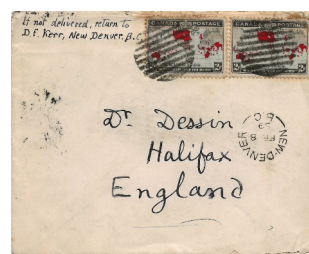 If not delivered, return to
D.F. Kerr, New Denver, B.C.
CANADA POSTAGE
CANADA POSTAGE
Dr Dessin
Halifax
England
NEW-DENVER
FE 8
99
B.C